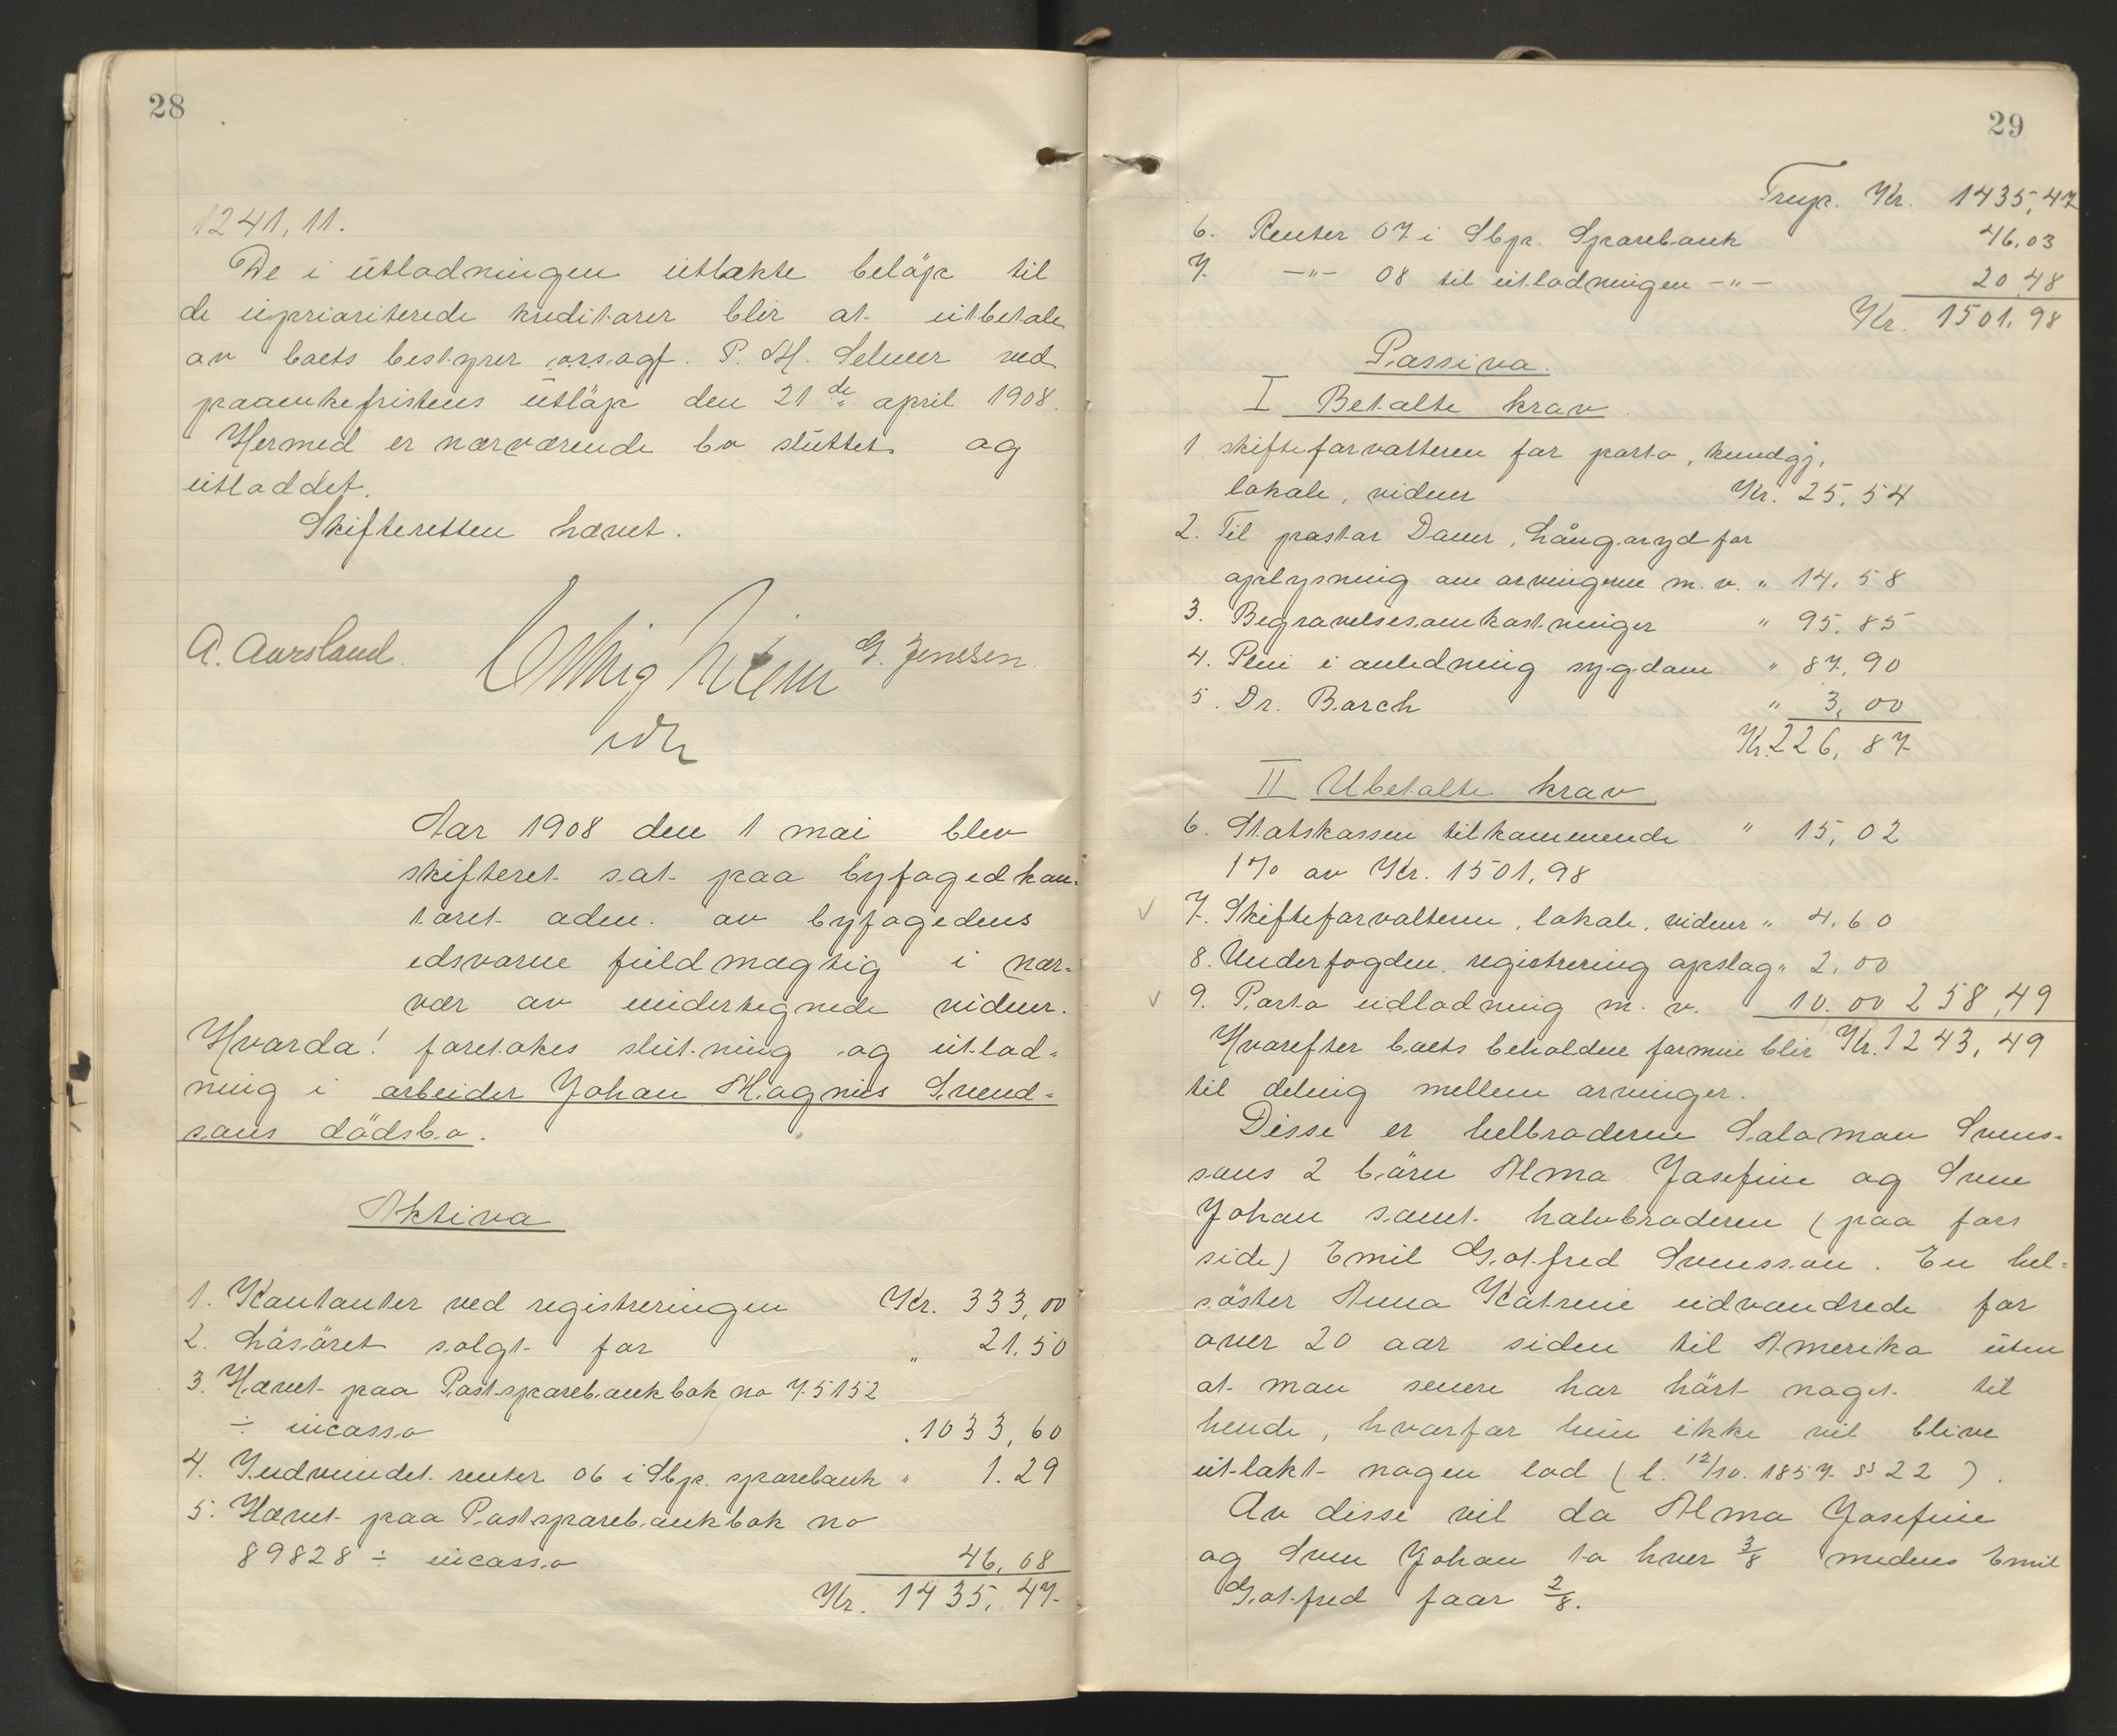 28
1241,11.
De i utlodningen utlakte beløp til
de uprioriterede kreditorer blir at utbetale
av boets bestyrer o.r.sagf. P. M. Selmer ved
paaankefristens utløp den 21de april 1908.
Hermed er nærværende bo sluttet og
utloddet.
Skifteretten hævet.
A. Aursland. G. Jenssen.
Aar 1908 den 1 mai blev
skifteret sat paa byfogedkon-
toret adm. av byfogedens
edsvorne fuldmægtig i nær-
vær av undertegnede vidner.
Hvorda! foretokes slutning og utlod-
ning i arbeider Johan Magnus Svend-
sons dødsbo.
Aktiva
1. Kontanter ved registreringen Kr. 333,00
2. Løsøret solgt for " 21.50
3. Hævet paa Postsparebankbok no 75152
÷ incasso " 1033,60
4. Indvundet renter 06 i Sbp. sparebank " 1.29
5. Hævet paa Postsparebankbok no
89828 ÷ incasso 46,08
Kr. 1435,47
29
Trsp. Kr. 1435,47
6. Renter 07 i Sbp. Sparebank 46.03
7. -"- 08 til utlodningen -"- 20.48
Kr. 1501.98
Passiva.
I Betalte krav
1 skifteforvalteren for porto, kundgj,
lokale, vidner Kr. 25.54
2. Til pastor Daner, Långaryd for
oplysning om arvingerne m. v. " 14.58
3. Begravelsesomkostninger " 95.85
4. Pleie i anledning sygdom " 87.90
5. Dr. Borch " 3,00
Kr. 226,87
II Ubetalte krav
6. Statskassen tilkommende " 15,02
1% av Kr. 1501,98
7. Skifteforvalteren, lokale, vidner " 4.60
8. Underfogden registrering opslag " 2.00
9. Porto udlodning m. v. 10.00 258,49
Hvorefter boets beholdne formue blir Kr. 1243,49
til deling mellem arvinger.
Disse er helbroderen Salomon Svens-
sons 2 børn Alma Josefine og Sven
Johan samt halvbroderen (paa fars
side) Emil Gotfred Svensson. En hel-
søster Anna Katrine udvandrede for
over 20 aar siden til Amerika uten
at man senere har hørt noget til
hende, hvorfor hun ikke vil blive
utlakt nogen lod (l. 12/10. 1857 § 22).
Av disse vil da Alma Josefine
og Sven Johan to hver 3/8 medens Emil
Gotfred faar 2/8.